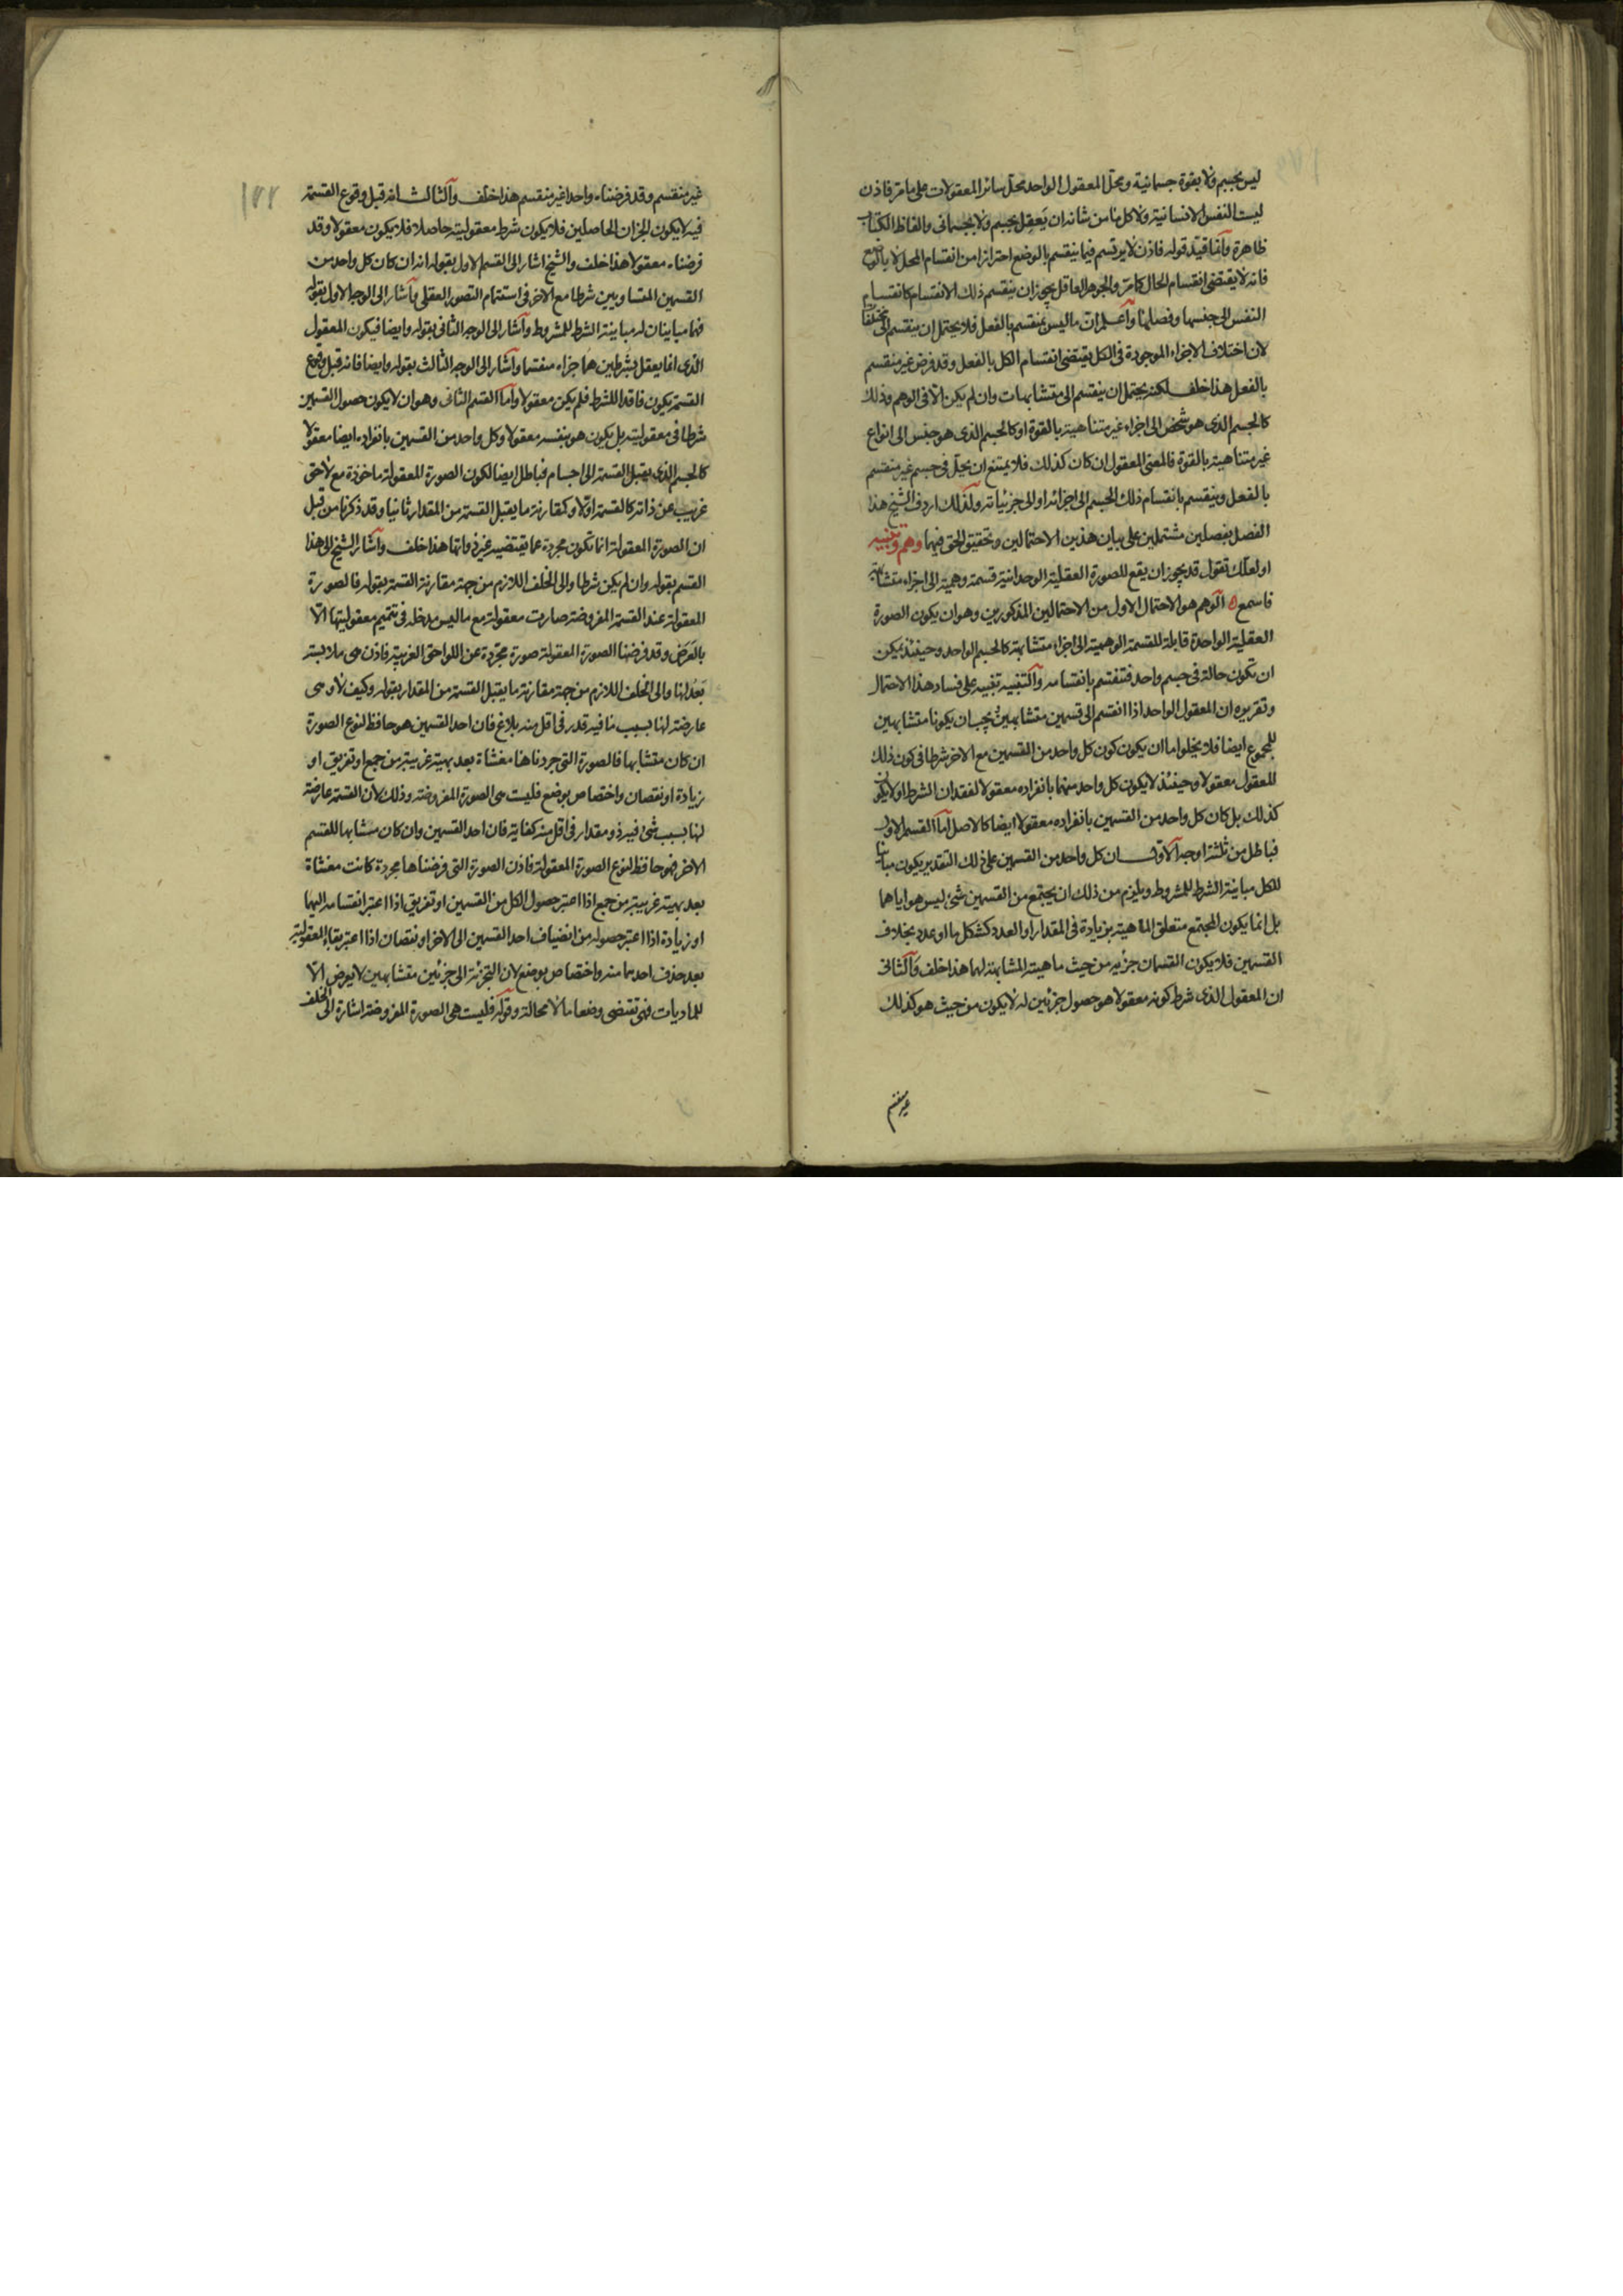 ليس بجسم ولا بقوة جسمانية ومحل المعقول الواحد محل سائر المعقولات على ما مر فاذن
ليست النفس الانسانية ولا كل ما من شانه ان يعقل بجسم ولا بجسمانى والفاظ الكتاب
ظاهرة وانما قيد قوله فاذن لا يرتسم فيما ينقسم بالوضع احترازا من انقسام المحل لا بالوضع
فانه لا يقتضى انقسام الحال كما مر والجوهر العاقل يجوز ان ينقسم ذلك الانقسام كانقسام
النفس الى جنسها وفصلها واعلم ان ما ليس بمنقسم بالفعل فلا يحتمل ان ينقسم الى مختلفات
لان اختلاف الاجزاء الموجودة فى الكل يقتضى انقسام الكل بالفعل وقد فرض غير منقسم
بالفعل هذا خلف لكنه يحتمل ان ينقسم الى متشابهات وان لم يكن الا فى الوهم وذلك
كالجسم الذى هو شخص الى اجزاء غير متناهية بالقوة او كالجسم الذى هو جنس الى انواع
غير متناهية بالقوة فالمعنى المعقول ان كان كذلك فلا يمتنع ان يحل فى جسم غير منقسم
بالفعل وينقسم بانقسام ذلك الجسم الى اجزائه او الى جزئياته ولذلك اردف الشيخ هذا
الفصل بفصلين مشتملين على بيان هذين الاحتمالين وتحقيق الحق فيهما وهم وتنبيه
او لعلك تقول قد يجوز ان يقع للصورة العقلية الوحدانية قسمة وهمية الى اجزاء متشابهة
فاسمع ه الوهم هو الاحتمال الاول من الاحتمالين المذكورين وهو ان يكون الصورة
العقلية الواحدة قابلة للقسمة الوهمية الى اجزاء متشابهة كالجسم الواحد وحينئذ يمكن
ان تكون حالة فى جسم واحد فتنقسم بانقسامه والتنبيه تنبيه على فساد هذا الاحتمال
وتقريره ان المعقول الواحد اذا انقسم الى قسمين متشابهين يجب ان يكونا متشابهين
للمجموع ايضا فلا يخلوا ما ان يكون كون كل واحد من القسمين مع الاخر شرطا فى كون ذلك
المعقول معقولا وحينئذ لا يكون كل واحد منهما بانفراده معقولا لفقدان الشرط او لا يكون
كذلك بل كان كل واحد من القسمين بانفراده معقولا ايضا كالاصل اما القسم الاول
فباطل من ثلثة اوجه الاول ان كل واحد من القسمين على ذلك التقدير يكون مباينا
للكل مباينة الشرط للمشروط ويلزم من ذلك ان يجتمع من القسمين شئ ليس هو اياهما
بل انما يكون المجتمع متعلق الماهية بزيادة فى المقدار او العدد كشكل ما او عدد بخلاف
القسمين فلا يكون القسمان جزئيه من حيث ماهيته المشابهة لهما هذا خلف والثانى
ان المعقول الذى شرط كونه معقولا هو حصول جزئين له لا يكون من حيث هو كذلك
غير منقسم
١٢٢
غير منقسم وقد فرضناه واحدا غير منقسم هذا خلف والثالث انه قبل وقوع القسمة
فيه لا يكون الجزان الحاصلين فلا يكون شرط معقوليته حاصلا فلا يكون معقولا وقد
فرضناه معقولا هذا خلف والشيخ اشار الى القسم الاول بقوله انه ان كان كل واحد من
القسمين المتساويين شرطا مع الاخر فى استتمام التصور العقلى واشار الى الوجه الاول بقوله
فهما مباينان له مباينة الشرط للمشروط واشار الى الوجه الثانى بقوله وايضا فيكون المعقول
الذى انما يعقل بشرطين هما جزاه منقسما واشار الى الوجه الثالث بقوله وايضا فانه قبل وقوع
القسمة يكون فاقدا للشرط فلم يكن معقولا واما القسم الثانى وهو ان لا يكون حصول القسمين
شرطا فى معقوليته بل يكون هو بنفسه معقولا وكل واحد من القسمين بانفراده ايضا معقولا
كالجسم الذى يقبل القسمة الى اجسام فباطل ايضا لكون الصورة المعقولة ماخوذة مع لاحق
غريب عن ذاته كالقسمة اولا وكمقارنة ما يقبل القسمة من المقدار ثانيا وقد ذكرنا من قبل
ان الصورة المعقولة انما تكون مجردة عما يقتضيه غير ذواتها هذا خلف واشار الشيخ الى هذا
القسم بقوله وان لم يكن شرطا والى الخلف اللازم من جهة مقارنة القسمة بقوله فالصورة
المعقولة عند القسمة المفروضة صارت معقولة مع ما ليس مدخله فى تتميم معقوليتها الا
بالعرض وقد فرضنا الصورة المعقولة صورة مجردة عن اللواحق الغريبة فاذن هى ملابسة
بعد لها والى الخلف اللازم من جهة مقارنة ما يقبل القسمة من المقدار بقوله وكيف لا وهى
عارضة لها بسبب ما فيه قدر فى اقل منه بلاغ فان احد القسمين هو حافظ لنوع الصورة
ان كان متشابها فالصورة التى جردناها مغشاة بعد بهيئة غريبة من جمع او تفريق او
زيادة او نقصان واختصاص بوضع فليست هى الصورة المفروضة وذلك لان القسمة عارضة
لها بسبب شئ فيه ذو مقدار فى اقل منه كفاية فان احد القسمين وان كان مشابها للقسم
الاخر فهو حافظ لنوع الصورة المعقولة فاذن الصورة التى فرضناها مجردة كانت مغشاة
بعد بهيئة غريبة من جمع اذا اعتبر حصول الكل من القسمين او تفريق اذا اعتبر انقسامه اليهما
او زيادة اذا اعتبر حصوله من انضياف احد القسمين الى الاخر او نقصان اذا اعتبر بقاء المعقولية
بعد حذف احدهما منه واختصاص بوضع لان التجزئة الى جزئين متشابهين لا يعرض الا
للماديات فهى تقتضى وضعا ما لا محالة وقوله فليست هى الصورة المفروضة اشارة الى الخلف